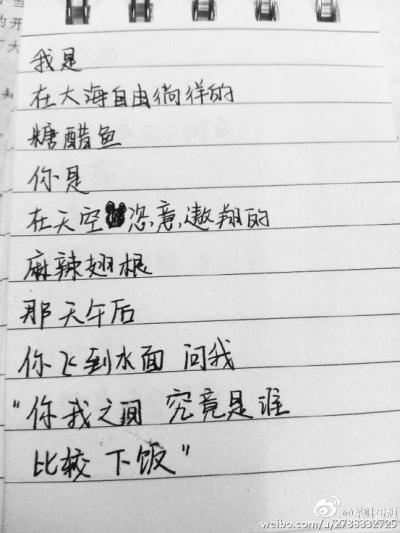 我是
在大海自由徜徉的
糖醋鱼
你是
在天空恣意遨翔的
麻辣翅根
那天午后
你飞到水面 问我
“你我之间 究竟是谁
比较 下饭”
weibo.com/u/2738332725